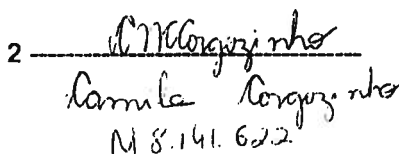 2 CMCorgozinho
Camila Corgozinho
M 8.141.622